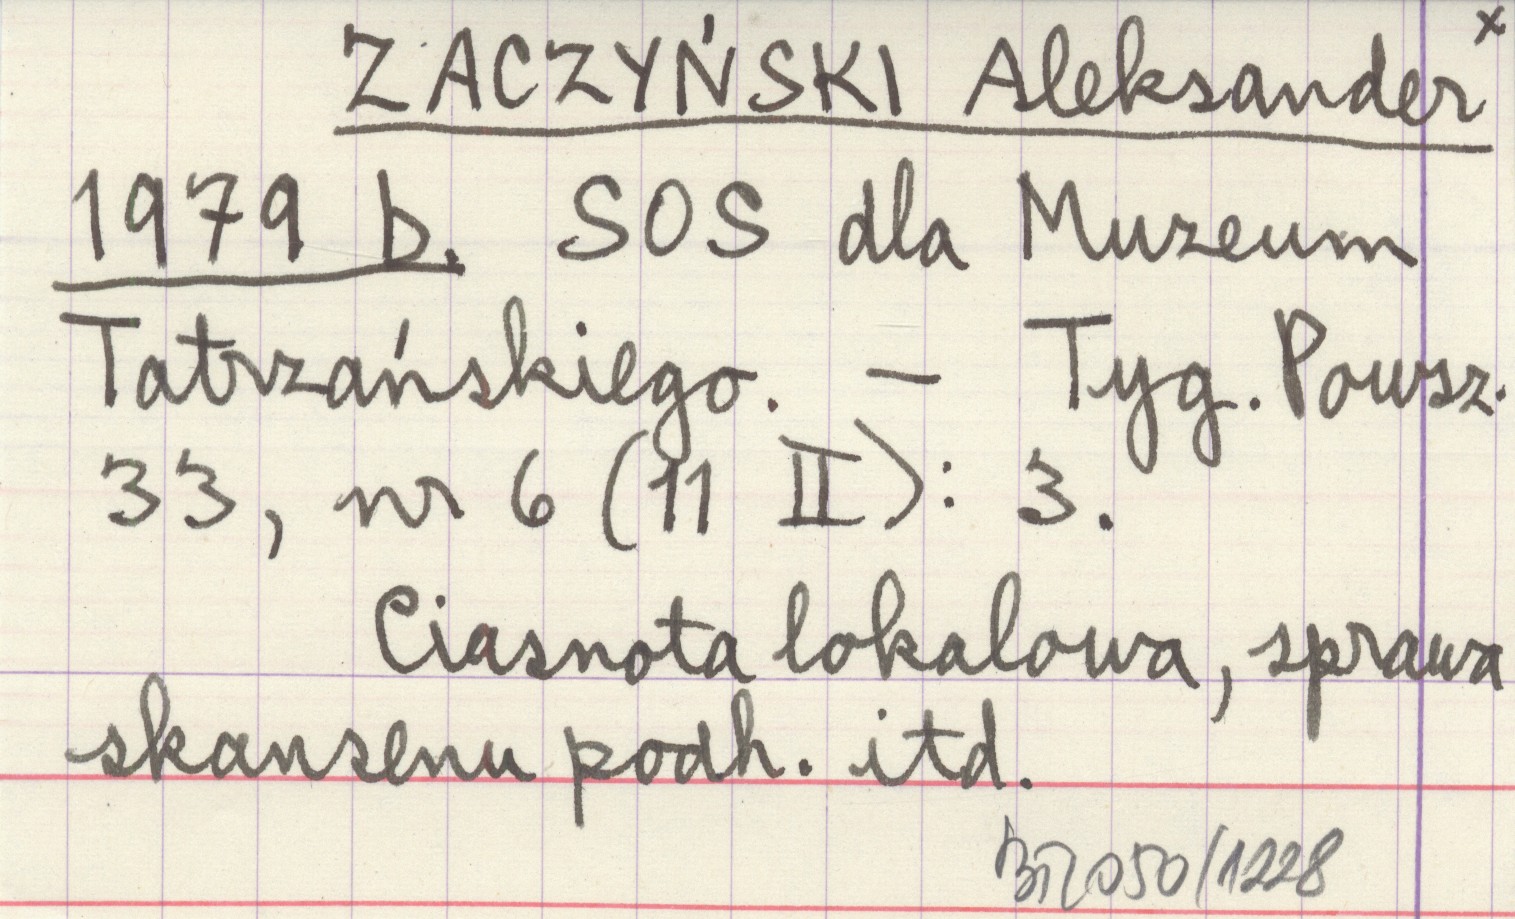 ZACZYŃSKI Aleksander x
1979 b. SOS dla Muzeum
Tatrzańskiego. – Tyg. Powsz.
33, nr 6 (11 II): 3.
Ciasnota lokalowa, sprawa
skansenu podh. itd.
050/1228